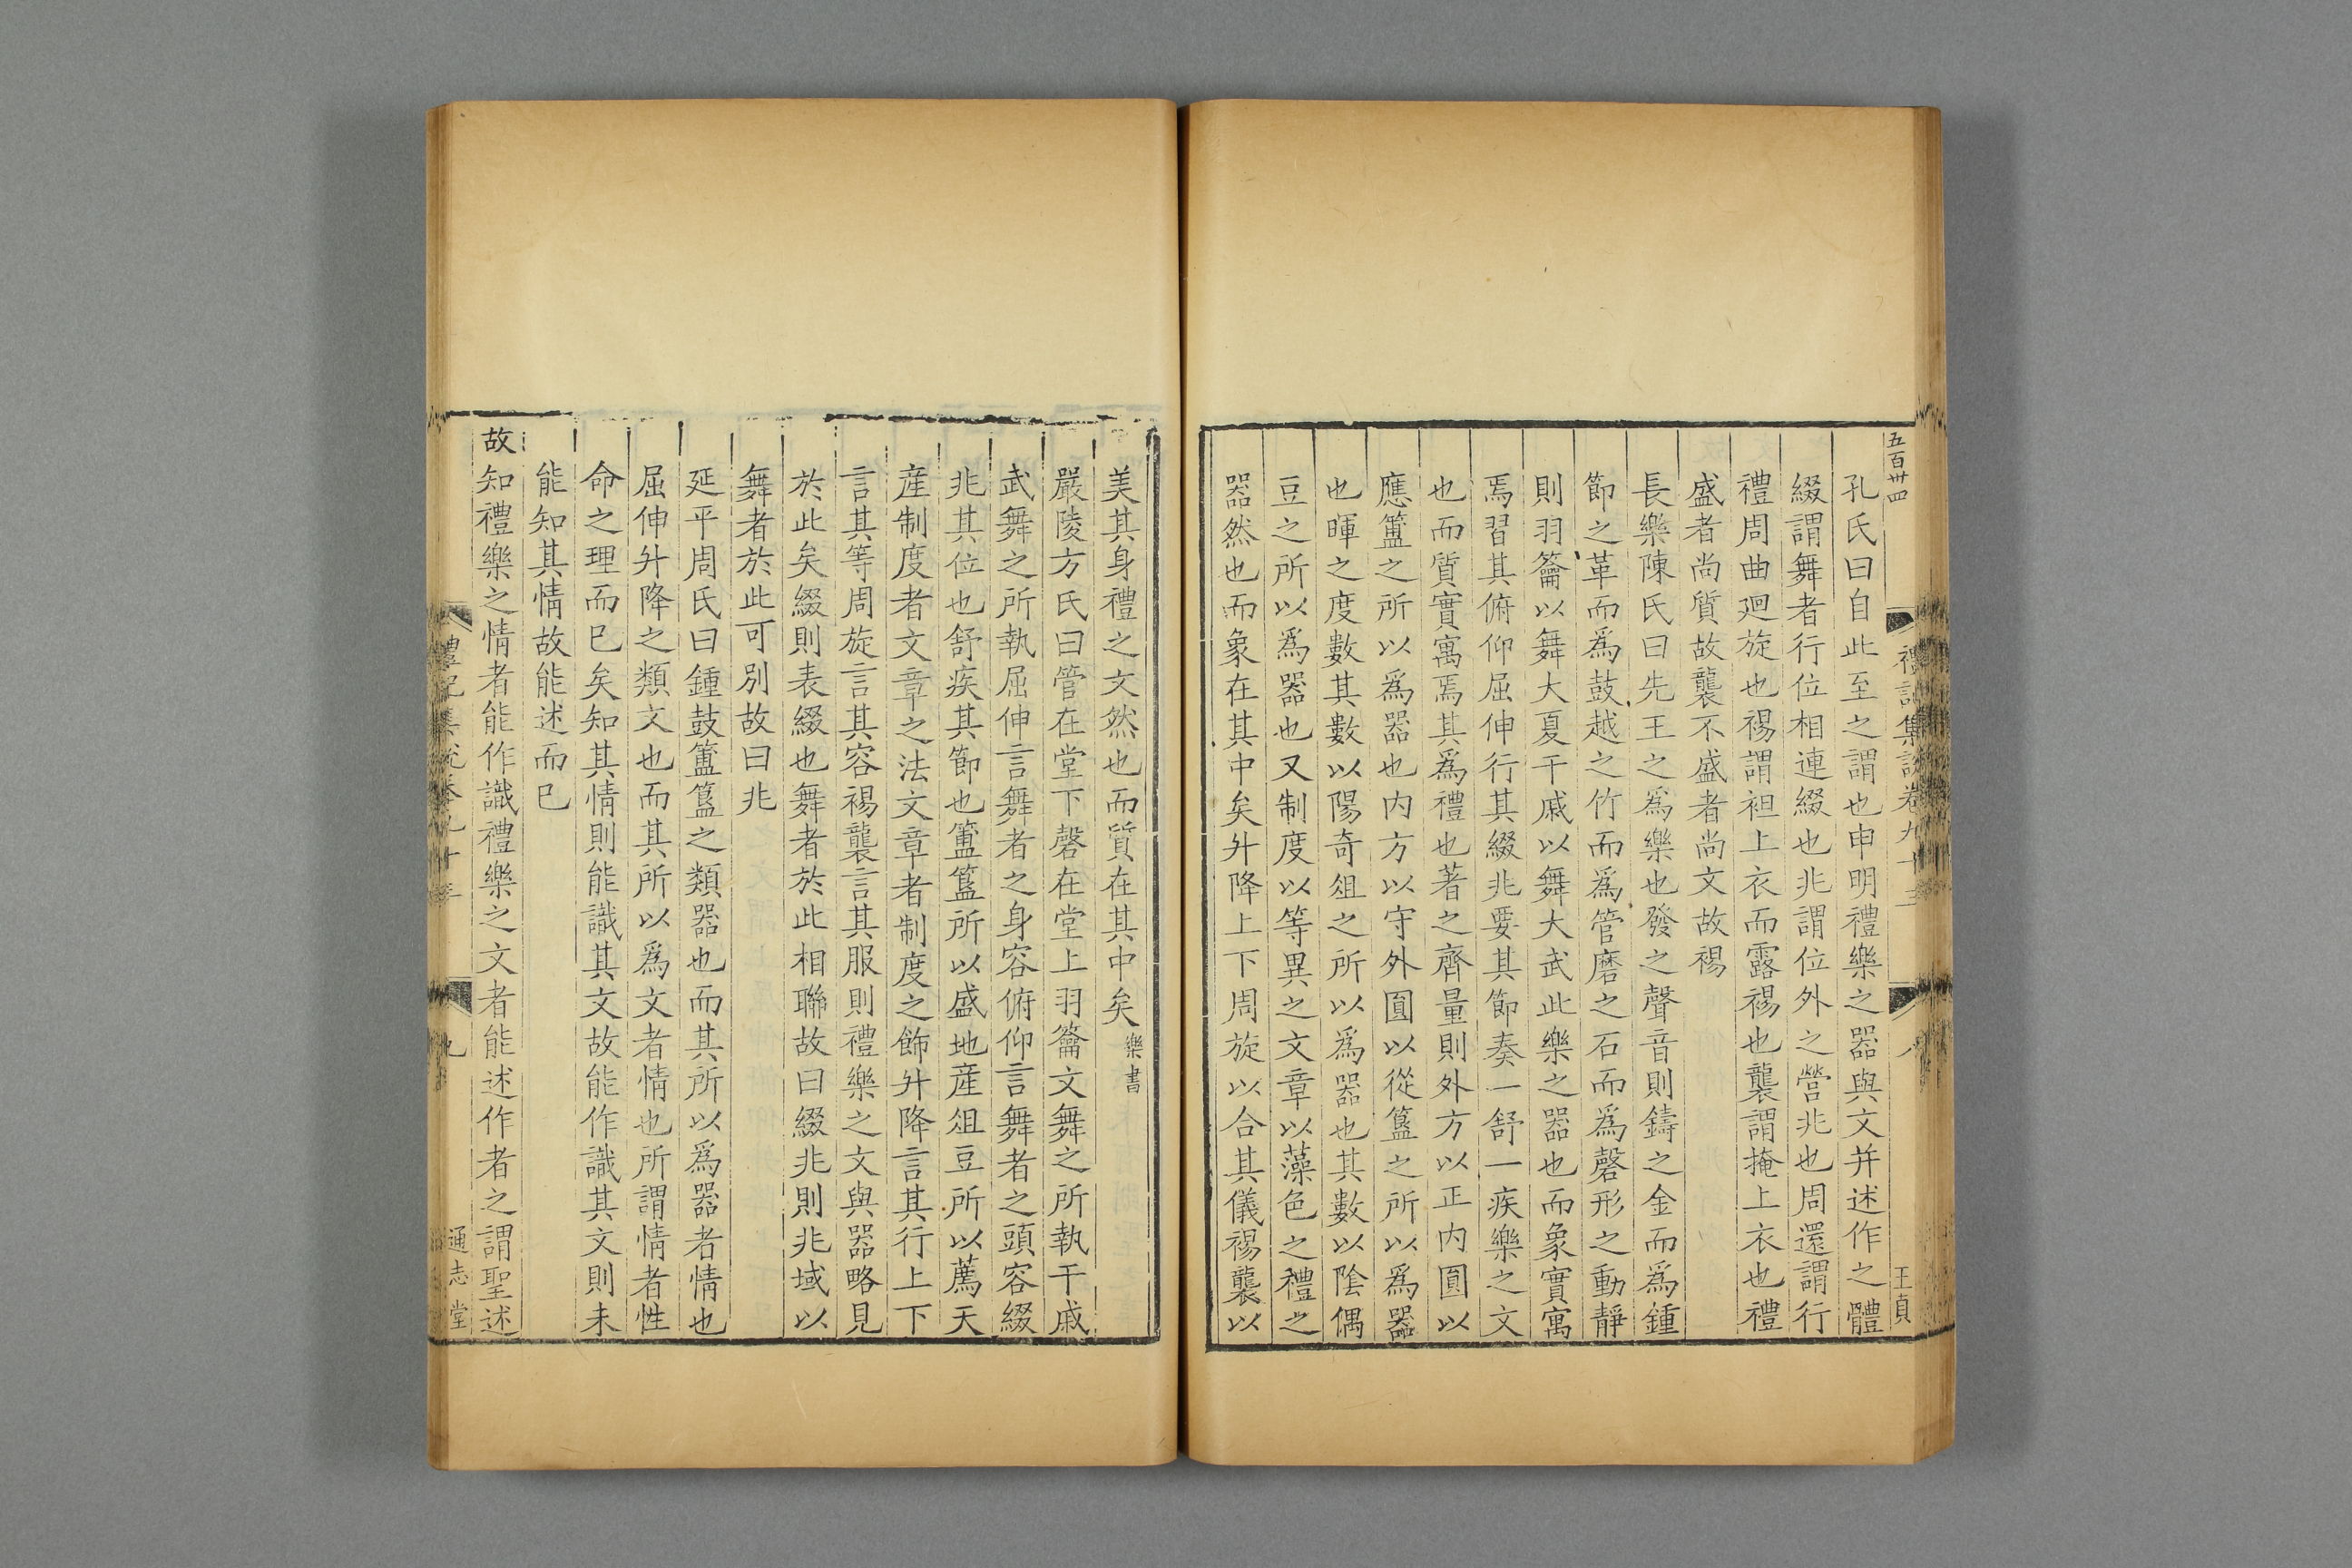 五百卅四
禮記集說卷九十三
八
王貞
孔氏曰自此至之謂也申明禮樂之器與文并述作之體
綴謂舞者行位相連綴也兆謂位外之營兆也周還謂行
禮周曲廻旋也裼謂袒上衣而露裼也襲謂掩上衣也禮
盛者尚質故襲不盛者尚文故裼
長樂陳氏曰先王之爲樂也發之聲音則鑄之金而爲鍾
節之革而爲鼓越之竹而爲管磨之石而爲磬形之動靜
則羽籥以舞大夏干戚以舞大武此樂之器也而象實寓
焉習其俯仰屈伸行其綴兆要其節奏一舒一疾樂之文
也而質實寓焉其爲禮也著之齊量則外方以正内圓以
應簠之所以爲器也内方以守外圓以從簋之所以爲器
也暉之度數其數以陽奇俎之所以爲器也其數以陰偶
豆之所以爲器也又制度以等異之文章以藻色之禮之
器然也而象在其中矣升降上下周旋以合其儀裼襲以
美其身禮之文然也而質在其中矣樂書
嚴陵方氏曰管在堂下磬在堂上羽籥文舞之所執干戚
武舞之所執屈伸言舞者之身容俯仰言舞者之頭容綴
兆其位也舒疾其節也簠簋所以盛地産俎豆所以薦天
産制度者文章之法文章者制度之飾升降言其行上下
言其等周旋言其容裼襲言其服則禮樂之文與器略見
於此矣綴則表綴也舞者於此相聯故曰綴兆則兆域以
舞者於此可別故曰兆
延平周氏曰鍾鼓簠簋之類器也而其所以爲器者情也
屈伸升降之類文也而其所以爲文者情也所謂情者性
命之理而已矣知其情則能識其文故能作識其文則未
能知其情故能述而已
故知禮樂之情者能作識禮樂之文者能述作者之謂聖述
禮記集說卷九十三
九
通志堂